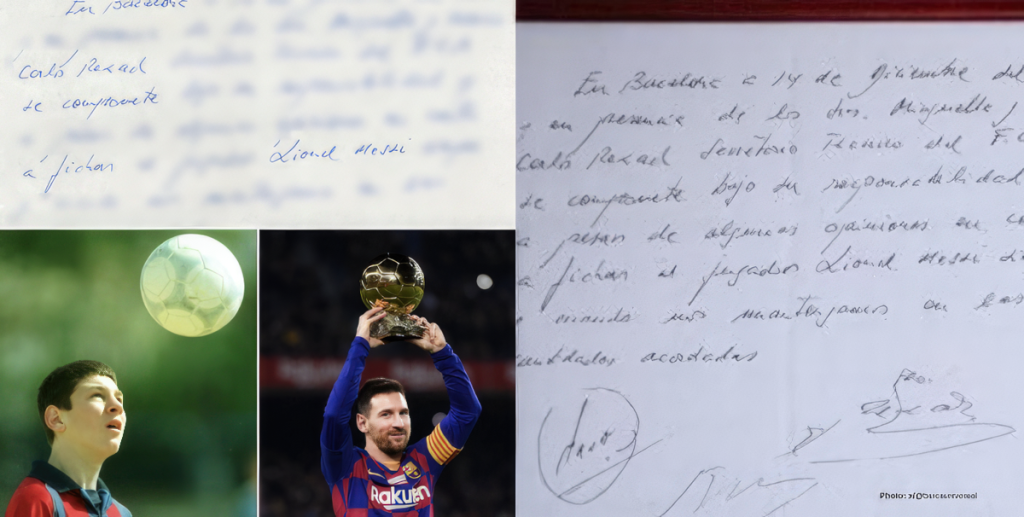 En Barcelona
Carlos Rexad
se compromete
á fichar Lionel Messi
Rakuten
En Barcelona a 14 de Diciembre del
y en presencia de los Sres. Minguella y
Carlos Rexad Secretario Técnico del F.C
se compromete bajo su responsabilidad
a pesar de algunas opiniones en co
á fichar al jugador Lionel Messi si
e cuando nos mantengamos en las
cantidades acordadas
Photo: